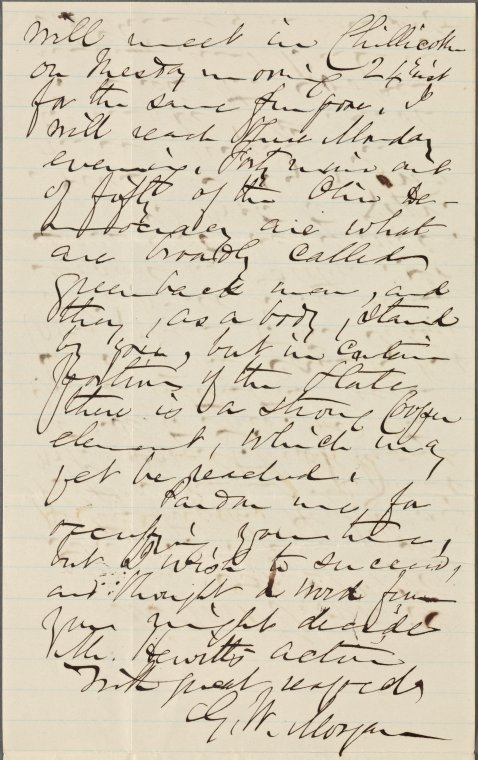 will meet in Chillicothe
on Tuesday morning 24th inst
for the same purpose, I
will reach there Monday
evening. Forty nine out
of fifty of the Ohio De-
mocracy are what
are broadly called
greenback men, and
they, as a body, stand
by you, but in certain
portions of the State
there is a strong Cooper
element, which may
yet be reached.
Pardon me for
occupying your time,
but I wish to succeed,
and thought a word from
you might decide
Mr. Hewitt's action
With great respect,
G. W. Morgan